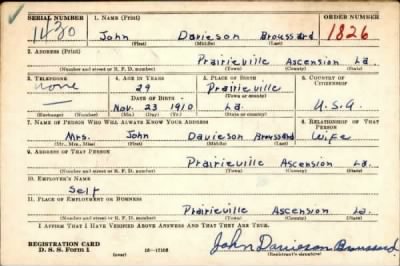 SERIAL NUMBER 1. NAME (Print) ORDER NUMBER
1430 John Davieson Broussard 1826
(First) (Middle) (Last)
2. ADDRESS (Print)
Prairieville Ascension La.
(Number and street or R. F. D. number) (Town) (County) (State)
3. TELEPHONE 4. AGE IN YEARS 5. PLACE OF BIRTH 6. COUNTRY OF CITIZENSHIP
none 29 Prairieville
DATE OF BIRTH (Town or county)
— Nov. 23 1910 La. U.S.A.
(Exchange) (Number) (Mo.) (Day) (Yr.) (State or country)
7. NAME OF PERSON WHO WILL ALWAYS KNOW YOUR ADDRESS 8. RELATIONSHIP OF THAT PERSON
Mrs. John Davieson Broussard Wife
(Mr., Mrs., Miss) (First) (Middle) (Last)
9. ADDRESS OF THAT PERSON
Prairieville Ascension La.
(Number and street or R. F. D. number) (Town) (County) (State)
10. EMPLOYER'S NAME
Self
11. PLACE OF EMPLOYMENT OR BUSINESS
Prairieville Ascension La.
(Number and street or R. F. D. number) (Town) (County) (State)
I AFFIRM THAT I HAVE VERIFIED ABOVE ANSWERS AND THAT THEY ARE TRUE.
REGISTRATION CARD
D. S. S. Form 1 (over) John Davieson Broussard
(Registrant's signature)